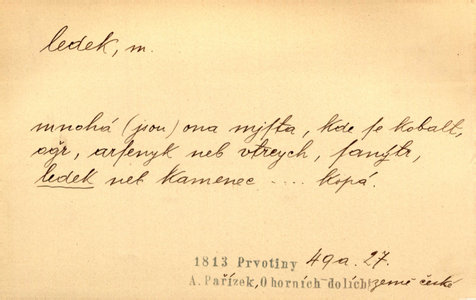 ledek, m.
mnohá (jsou) ona mjſta, kde ſe kobalt,
ogr, arſenyk neb vtreych, ſanýtr,
ledek neb kamenec .... kopá.
1813 Prvotiny 49a. 27.
A. Pařízek, O horních dolích země české